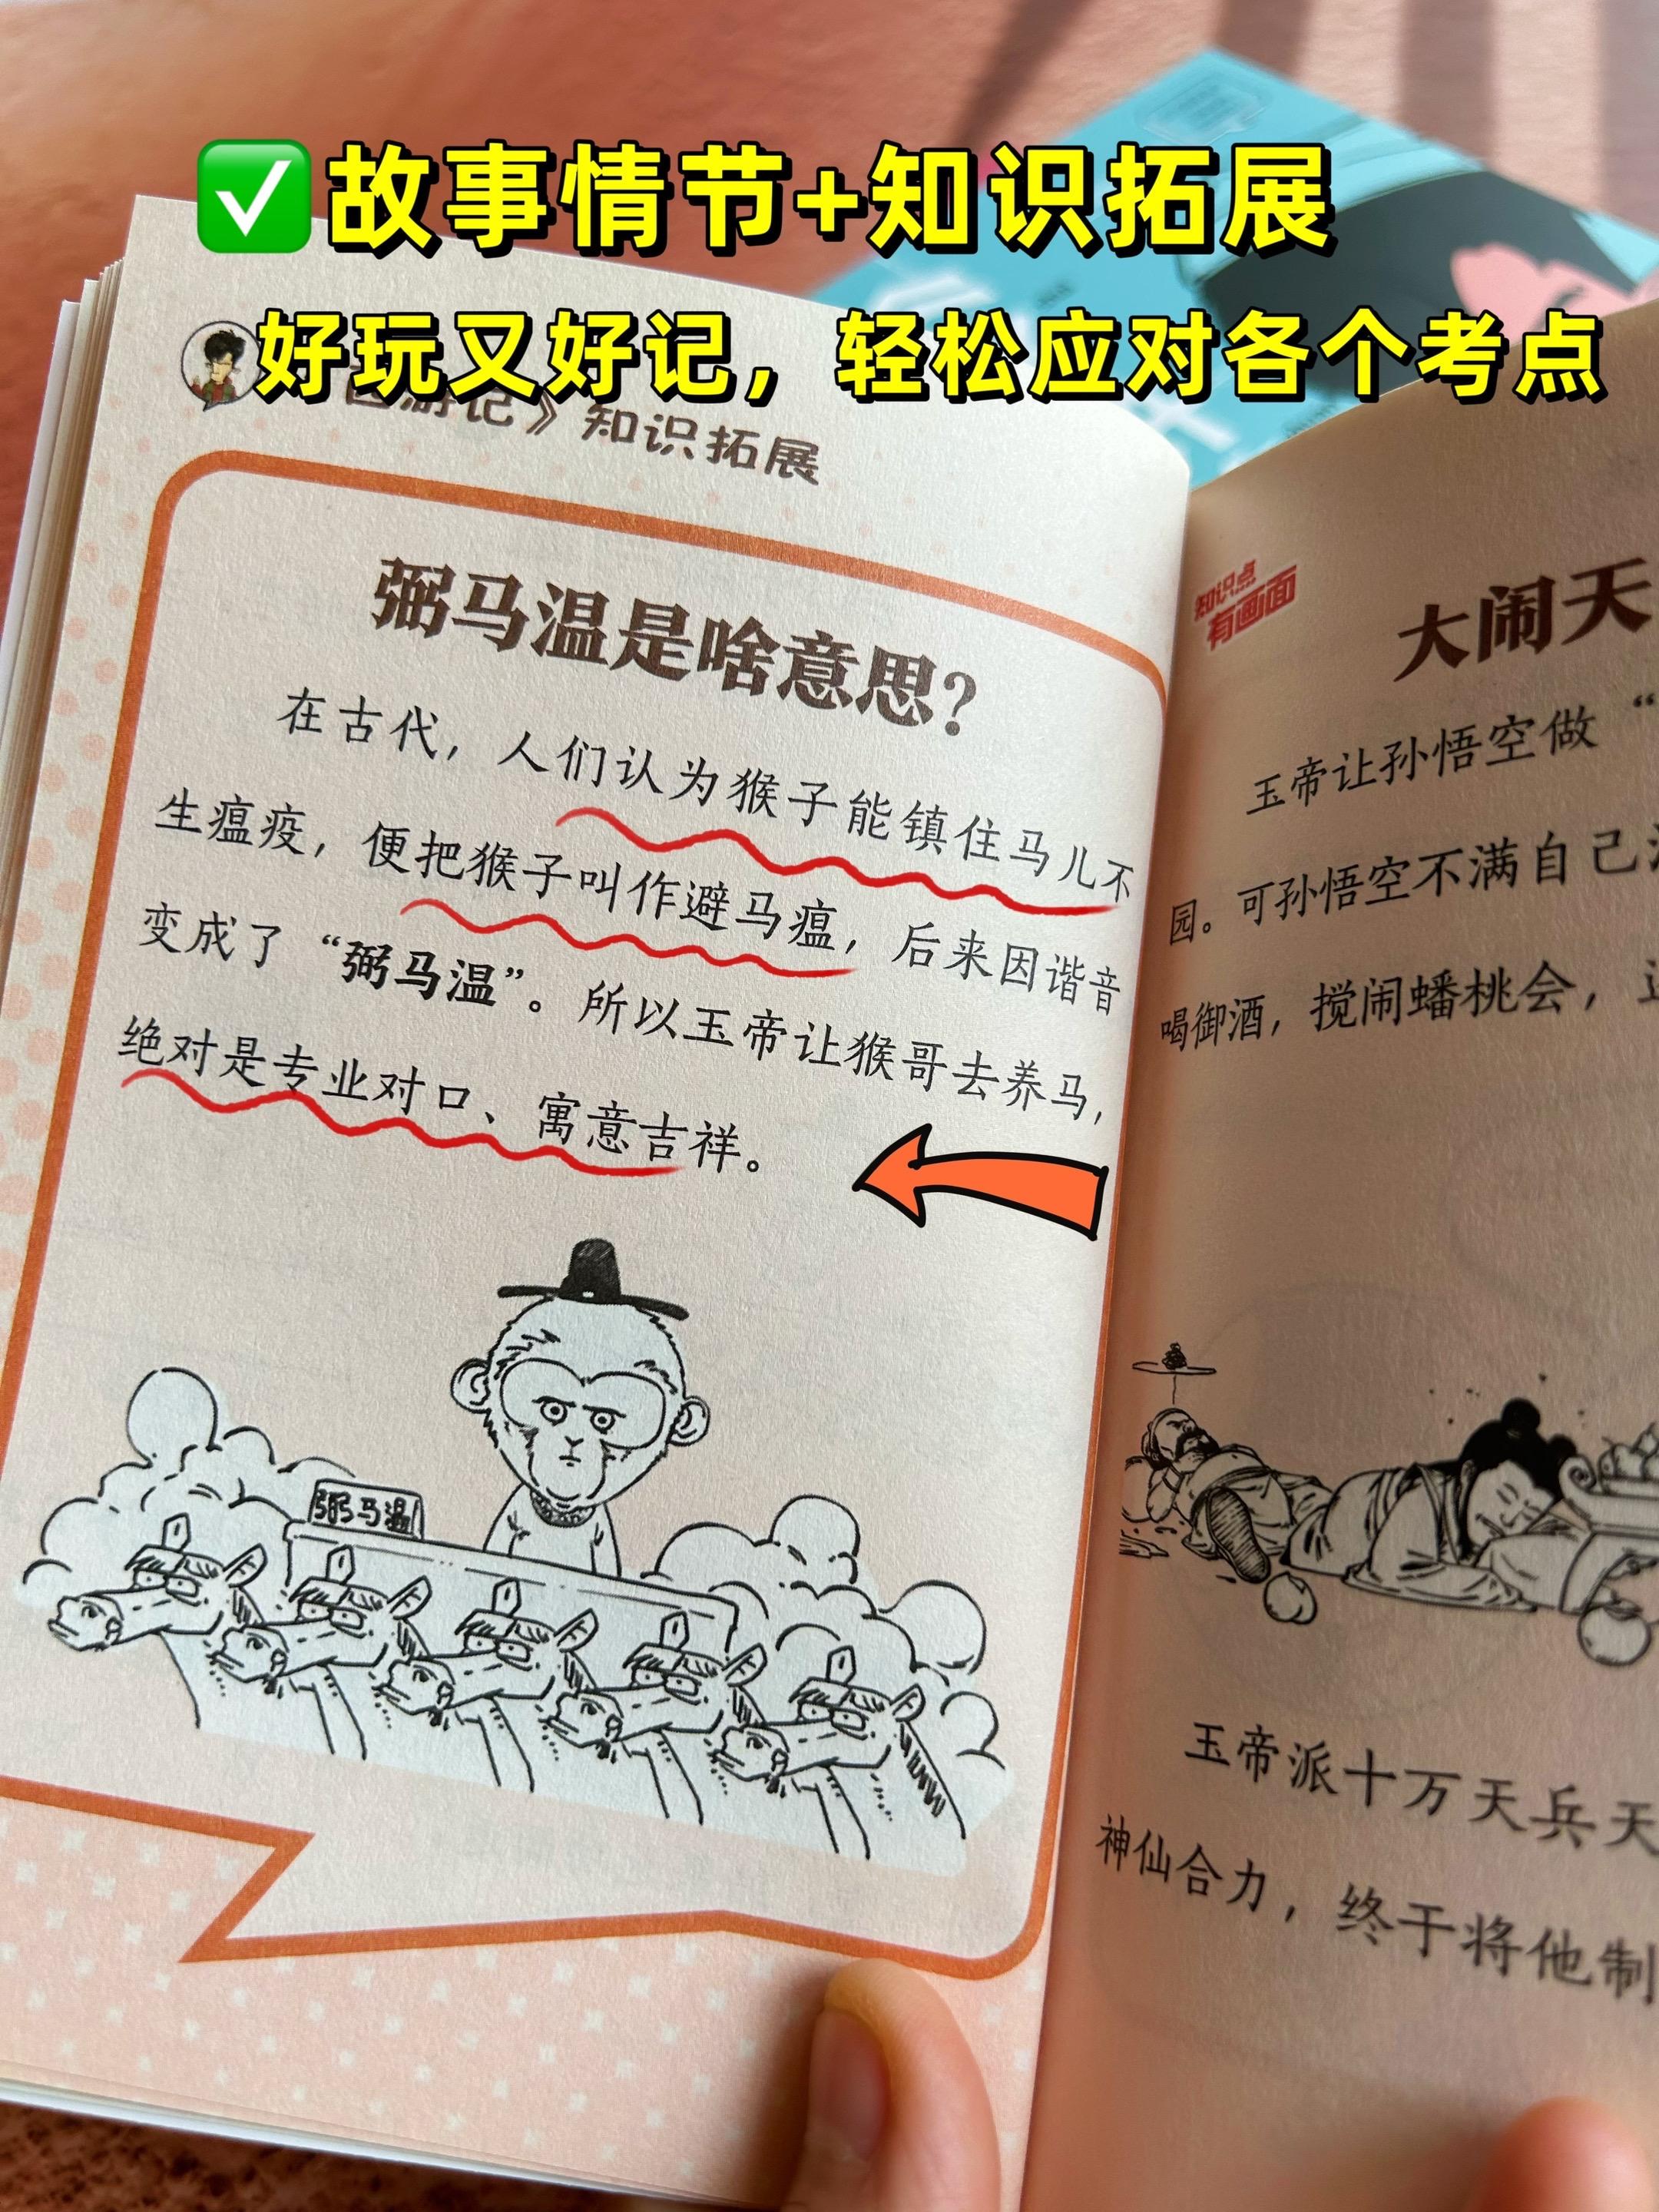 ✅故事情节+知识拓展
好玩又好记，轻松应对各个考点
西游记》知识拓展
弼马温是啥意思？
在古代，人们认为猴子能镇住马儿不
生瘟疫，便把猴子叫作避马瘟，后来因谐音
变成了“弼马温”。所以玉帝让猴哥去养马，
绝对是专业对口、寓意吉祥。
弼马温
知识点
有画面
大闹天
玉帝让孙悟空做“
园。可孙悟空不满自己
喝御酒，搅闹蟠桃会，
玉帝派十万天兵天
神仙合力，终于将他制